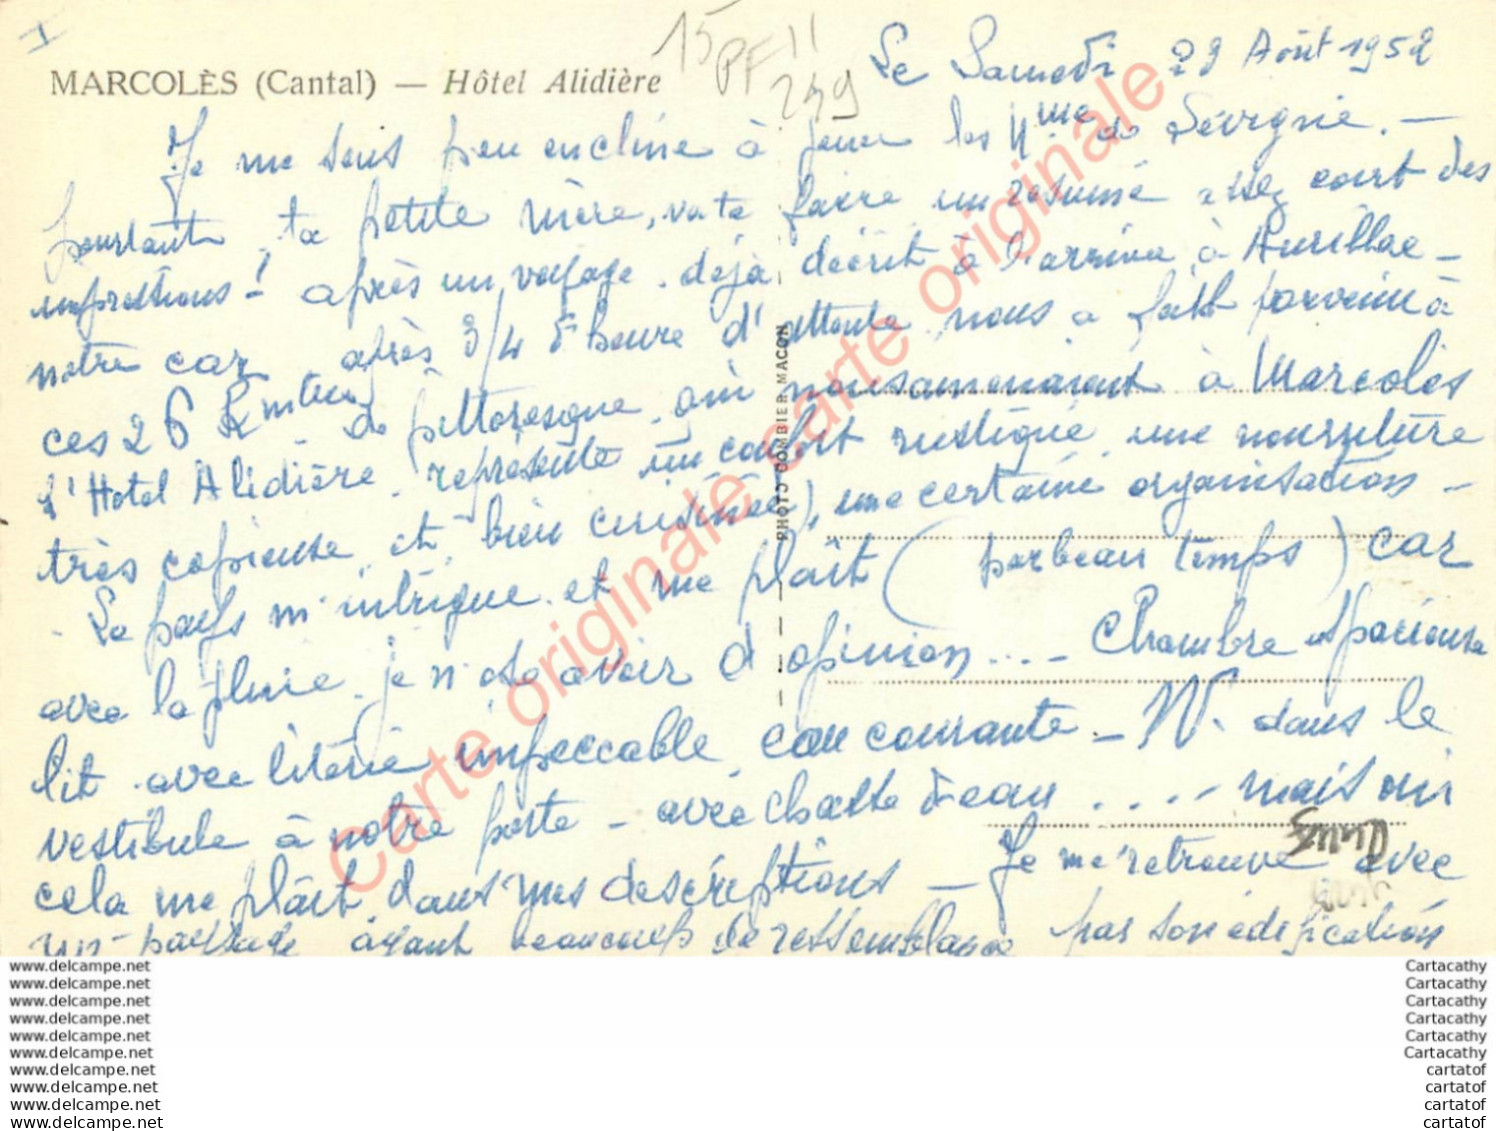 I
15 PF 11
249
Le Samedi 23 Août 1952
MARCOLÈS (Cantal) — Hôtel Alidière
Je me sens peu encline à jouer les Mme de Sévigné. —
pourtant, ta petite mère, va te faire un résumé assez court des
impressions ! après un voyage déjà décrit à l'arrivée à Aurillac —
notre car après 3/4 d'heure d'attente nous a fait parvenir à
ces 26 Kmètres de pittoresque qui nous amenaient à Marcolès
l'Hotel Alidière représente un confort rustique une nourriture
très copieuse et bien cuisinée, une certaine organisation —
Le pays m'intrigue et me plaît (par beau temps) car
avec la pluie je n'ose avoir d'opinion .... Chambre spacieuse
lit avec literie impeccable eau courante — W. dans le
vestibule à notre porte — avec chasse d'eau .... mais oui
cela me plaît dans mes descriptions — Je me retrouve avec
un paysage ayant beaucoup de ressemblance par son édification
PHOTO COMBIER MACON
Carte originale carte originale
www.delcampe.net
www.delcampe.net
www.delcampe.net
www.delcampe.net
www.delcampe.net
www.delcampe.net
www.delcampe.net
www.delcampe.net
www.delcampe.net
www.delcampe.net
Cartacathy
Cartacathy
Cartacathy
Cartacathy
Cartacathy
Cartacathy
cartatof
cartatof
cartatof
cartatof